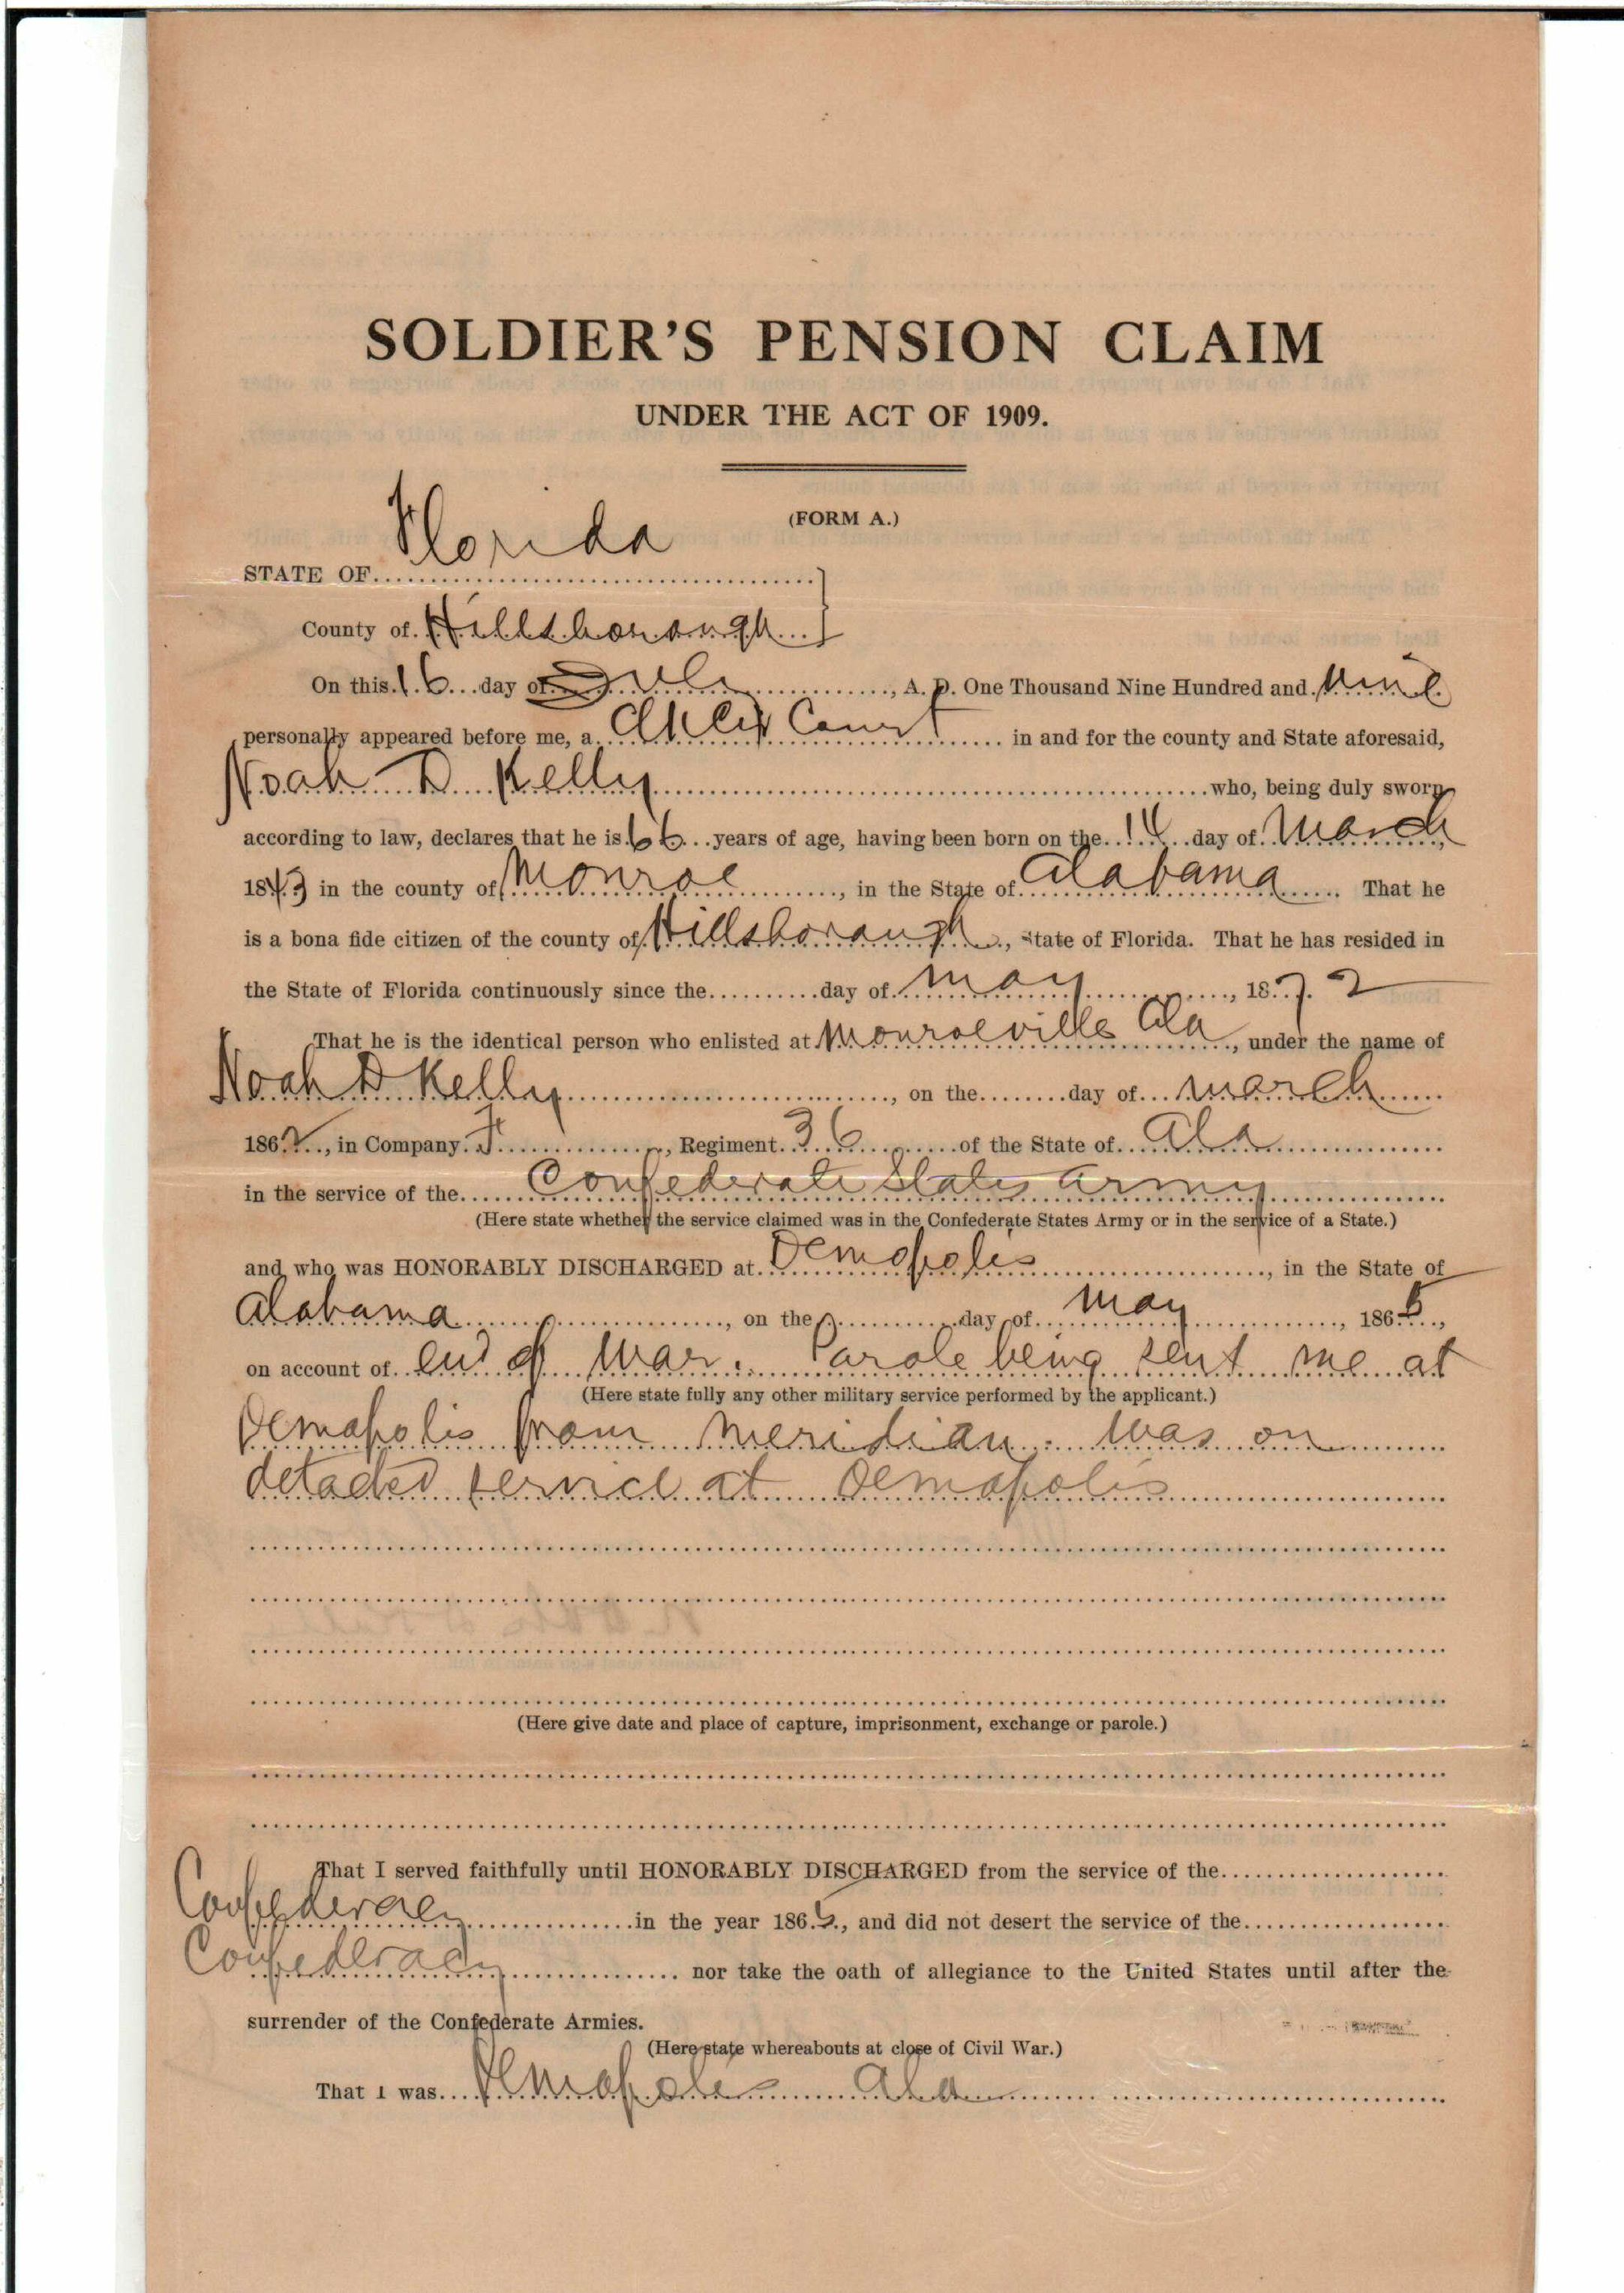 SOLDIER'S PENSION CLAIM
UNDER THE ACT OF 1909.
(FORM A.)
STATE OF Florida
County of Hillsborough
On this 16 day of July, A. D. One Thousand Nine Hundred and nine
personally appeared before me, a Clk Cir Court in and for the county and State aforesaid,
Noah D Kelly who, being duly sworn
according to law, declares that he is 66 years of age, having been born on the 14 day of March
1843 in the county of Monroe, in the State of Alabama. That he
is a bona fide citizen of the county of Hillsborough, State of Florida. That he has resided in
the State of Florida continuously since the day of May, 1872
That he is the identical person who enlisted at Monroeville Ala, under the name of
Noah D Kelly, on the day of March
1862, in Company F, Regiment 36 of the State of Ala
in the service of the Confederate States Army
(Here state whether the service claimed was in the Confederate States Army or in the service of a State.)
and who was HONORABLY DISCHARGED at Demopolis, in the State of
Alabama, on the day of May, 1865,
on account of end of War. Parole being sent me at
(Here state fully any other military service performed by the applicant.)
Demopolis from Meridian. Was on
detached service at Demopolis
(Here give date and place of capture, imprisonment, exchange or parole.)
That I served faithfully until HONORABLY DISCHARGED from the service of the
Confederacy in the year 1865, and did not desert the service of the
Confederacy nor take the oath of allegiance to the United States until after the
surrender of the Confederate Armies.
(Here state whereabouts at close of Civil War.)
That I was Demopolis Ala